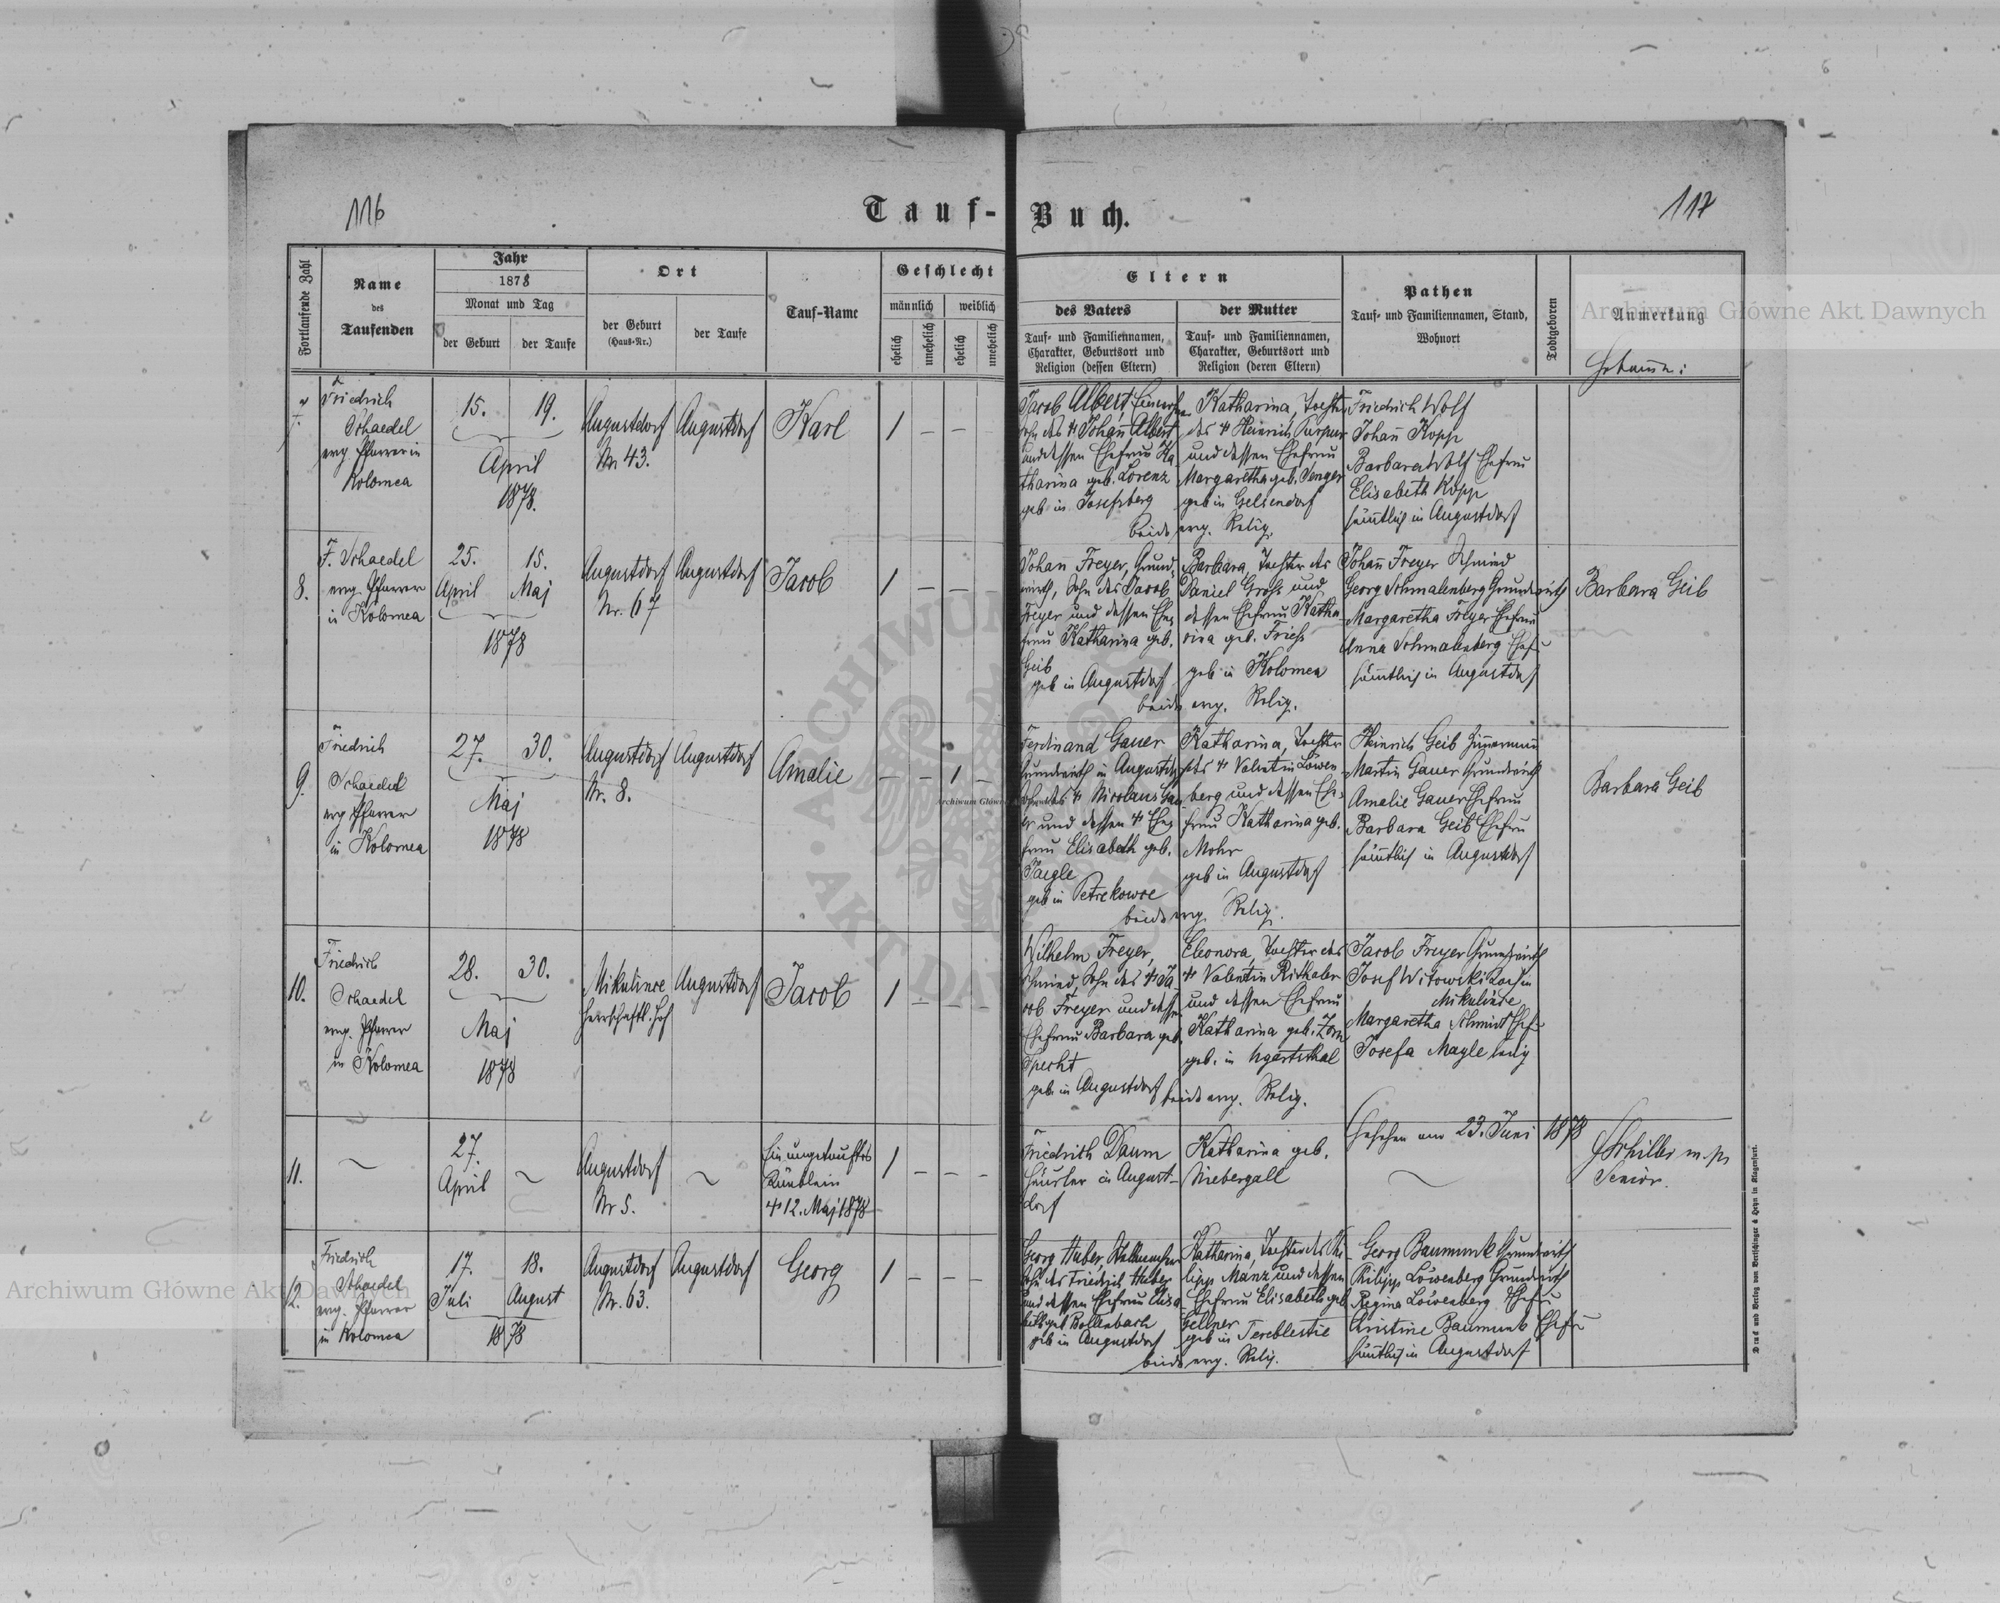 116
117
Tauf-Buch.
Fortlaufende Zahl
Name
des
Taufenden
Jahr
1878
Monat und Tag
der Geburt
der Taufe
Ort
der Geburt
(Haus-Nr.)
der Taufe
Tauf-Name
Geschlecht
männlich
weiblich
ehelich
unehelich
ehelich
unehelich
Eltern
des Vaters
Tauf- und Familiennamen,
Charakter, Geburtsort und
Religion (dessen Eltern)
der Mutter
Tauf- und Familiennamen,
Charakter, Geburtsort und
Religion (deren Eltern)
Pathen
Tauf- und Familiennamen, Stand,
Wohnort
Todtgeboren
Anmerkung
7.
Friedrich
Schaedel
evg Pfarrer in
Kolomea
15.
19.
April
1878.
Augustdorf
Nr 43.
Augustdorf
Karl
1 — —
Jacob Albert
Sohn des + Johañ Albert
und dessen Ehefrau Ka
tharina geb. Lorenz
geb in Josefsberg
Katharina, Tochter
des + Heinrich
und dessen Ehefrau
Margaretha geb. Senger
geb in Gelsendorf
beide evg. Relig.
Friedrich Wolf
Johañ Kopp
Barbara Wolf Ehefrau
Elisabeth Kopp
säm̃tlich in Augustdorf
8.
F. Schaedel
evg. Pfarrer
in Kolomea
25.
April
15.
Maj
1878
Augustdorf
Nr. 67
Augustdorf
Jacob
1 — —
Johañ Freyer, Grund-
wirth, Sohn des Jacob
Freyer und dessen Ehe
frau Katharina geb.
Geib
geb in Augustdorf
Barbara, Tochter des
Daniel Groß und
dessen Ehefrau Katha
rina geb. Frieß
geb in Kolomea
beide evg. Relig.
Johañ Freyer Schmied
Georg Schmalenberg Grundwirth
Margaretha Freyer Ehefrau
Anna Schmalenberg Ehef
säm̃tlich in Augustdorf
Barbara Geib
9.
Friedrich
Schaedel
evg Pfarrer
in Kolomea
27.
30.
Maj
1878
Augustdorf
Nr. 8.
Augustdorf
Amalie
— — 1 —
Ferdinand Gauer
Grundwirth in Augustdf
Sohn des + Nicolaus Gau
er und dessen + Ehe
frau Elisabeth geb.
geb in Petrekowce
Katharina, Tochter
des + Valentin Löwen
berg und dessen Ehe
frau Katharina geb.
Mohr
geb in Augustdorf
beide evg. Relig.
Heinrich Geib Zim̃ermañ
Martin Gauer Grundwirth
Amalie Gauer Ehefrau
Barbara Geib Ehefrau
säm̃tlich in Augustdorf
Barbara Geib
10.
Friedrich
Schaedel
evg. Pfarrer
in Kolomea
28.
30.
Maj
1878
Mikulince
herrschaftl. Hof
Augustdorf
Jacob
1 — — —
Wilhelm Freyer,
Schmied, Sohn des + Ja
cob Freyer und dessen
Ehefrau Barbara geb.
Specht
geb in Augustdorf
Eleonora, Tochter des
+ Valentin Rithaler
und dessen Ehefrau
Katharina geb. Zorn
geb. in Ugartsthal
beide evg. Relig.
Jacob Freyer Grundwirth
Josef Witowski Koch in
Mikulince
Margaretha Schmidt Ehef
Josefa Magle ledig
11.
27.
April
Augustdorf
Nr 5.
Ein ungetauftes
Knäblein
+ 12. Maj 1878
1 — — —
Friedrich Daum
Häusler in August-
dorf
Katharina geb.
Niebergall
Gesehen am 23. Juni 1878
Schiller m.p.
Senior.
12.
Friedrich
Schaedel
evg. Pfarrer
in Kolomea
17.
Juli
18.
August
1878
Augustdorf
Nr. 63.
Augustdorf
Georg
1 — — —
Georg Huber,
Sohn des Friedrich Huber
und dessen Ehefrau Elisa
beth geb Bollenbach
geb in Augustdorf
Katharina, Tochter des Phi
lipp Manz und dessen
Ehefrau Elisabeth geb
Gellner
geb in Tereblestie
beide evg. Relig.
Georg Baumunk Grundwirth
Philipp Löwenberg Grundwirth
Regina Löwenberg Ehef
Christine Baumunk Ehef
säm̃tlich in Augustdorf
Druck und Verlag von Bertschinger & Heyn in Klagenfurt.
Archiwum Główne Akt Dawnych
Archiwum Główne Akt Dawnych
Archiwum Główne Akt Dawnych